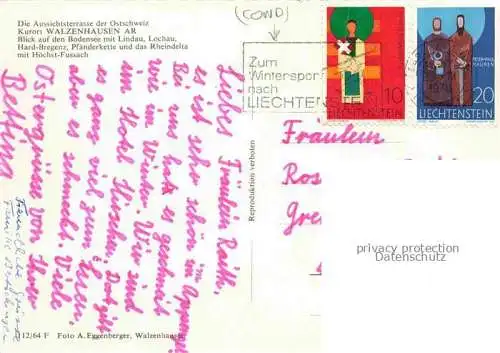 Die Aussichtsterrasse der Ostschweiz
Kurort WALZENHAUSEN AR
Blick auf den Bodensee mit Lindau, Lochau,
Hard-Bregenz, Pfänderkette und das Rheindelta
mit Höchst-Fussach
(COND)
Zum
Winterspor
nach
LIECHTENSTEIN
10
LIECHTENSTEIN
20
LIECHTENSTEIN
Liebes Fräulein Rath,
es ist sehr schön im
Bei uns hat es geschneit
wie im Winter. Wir sind
im Hotel Hirschen. Dort gibt
es ganz viel zum
aber es schmeckt. Viele
Ostergrüsse von Ihrer
Bettina
Freundliche Grüsse
Familie
Reproduktion verboten
Fräulein
Ros
Gre
privacy protection
Datenschutz
12/64 F Foto A. Eggenberger, Walzenhausen